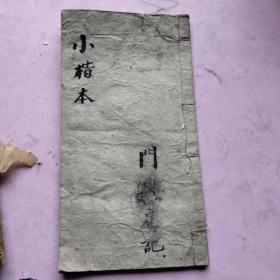 小楷本
門
記